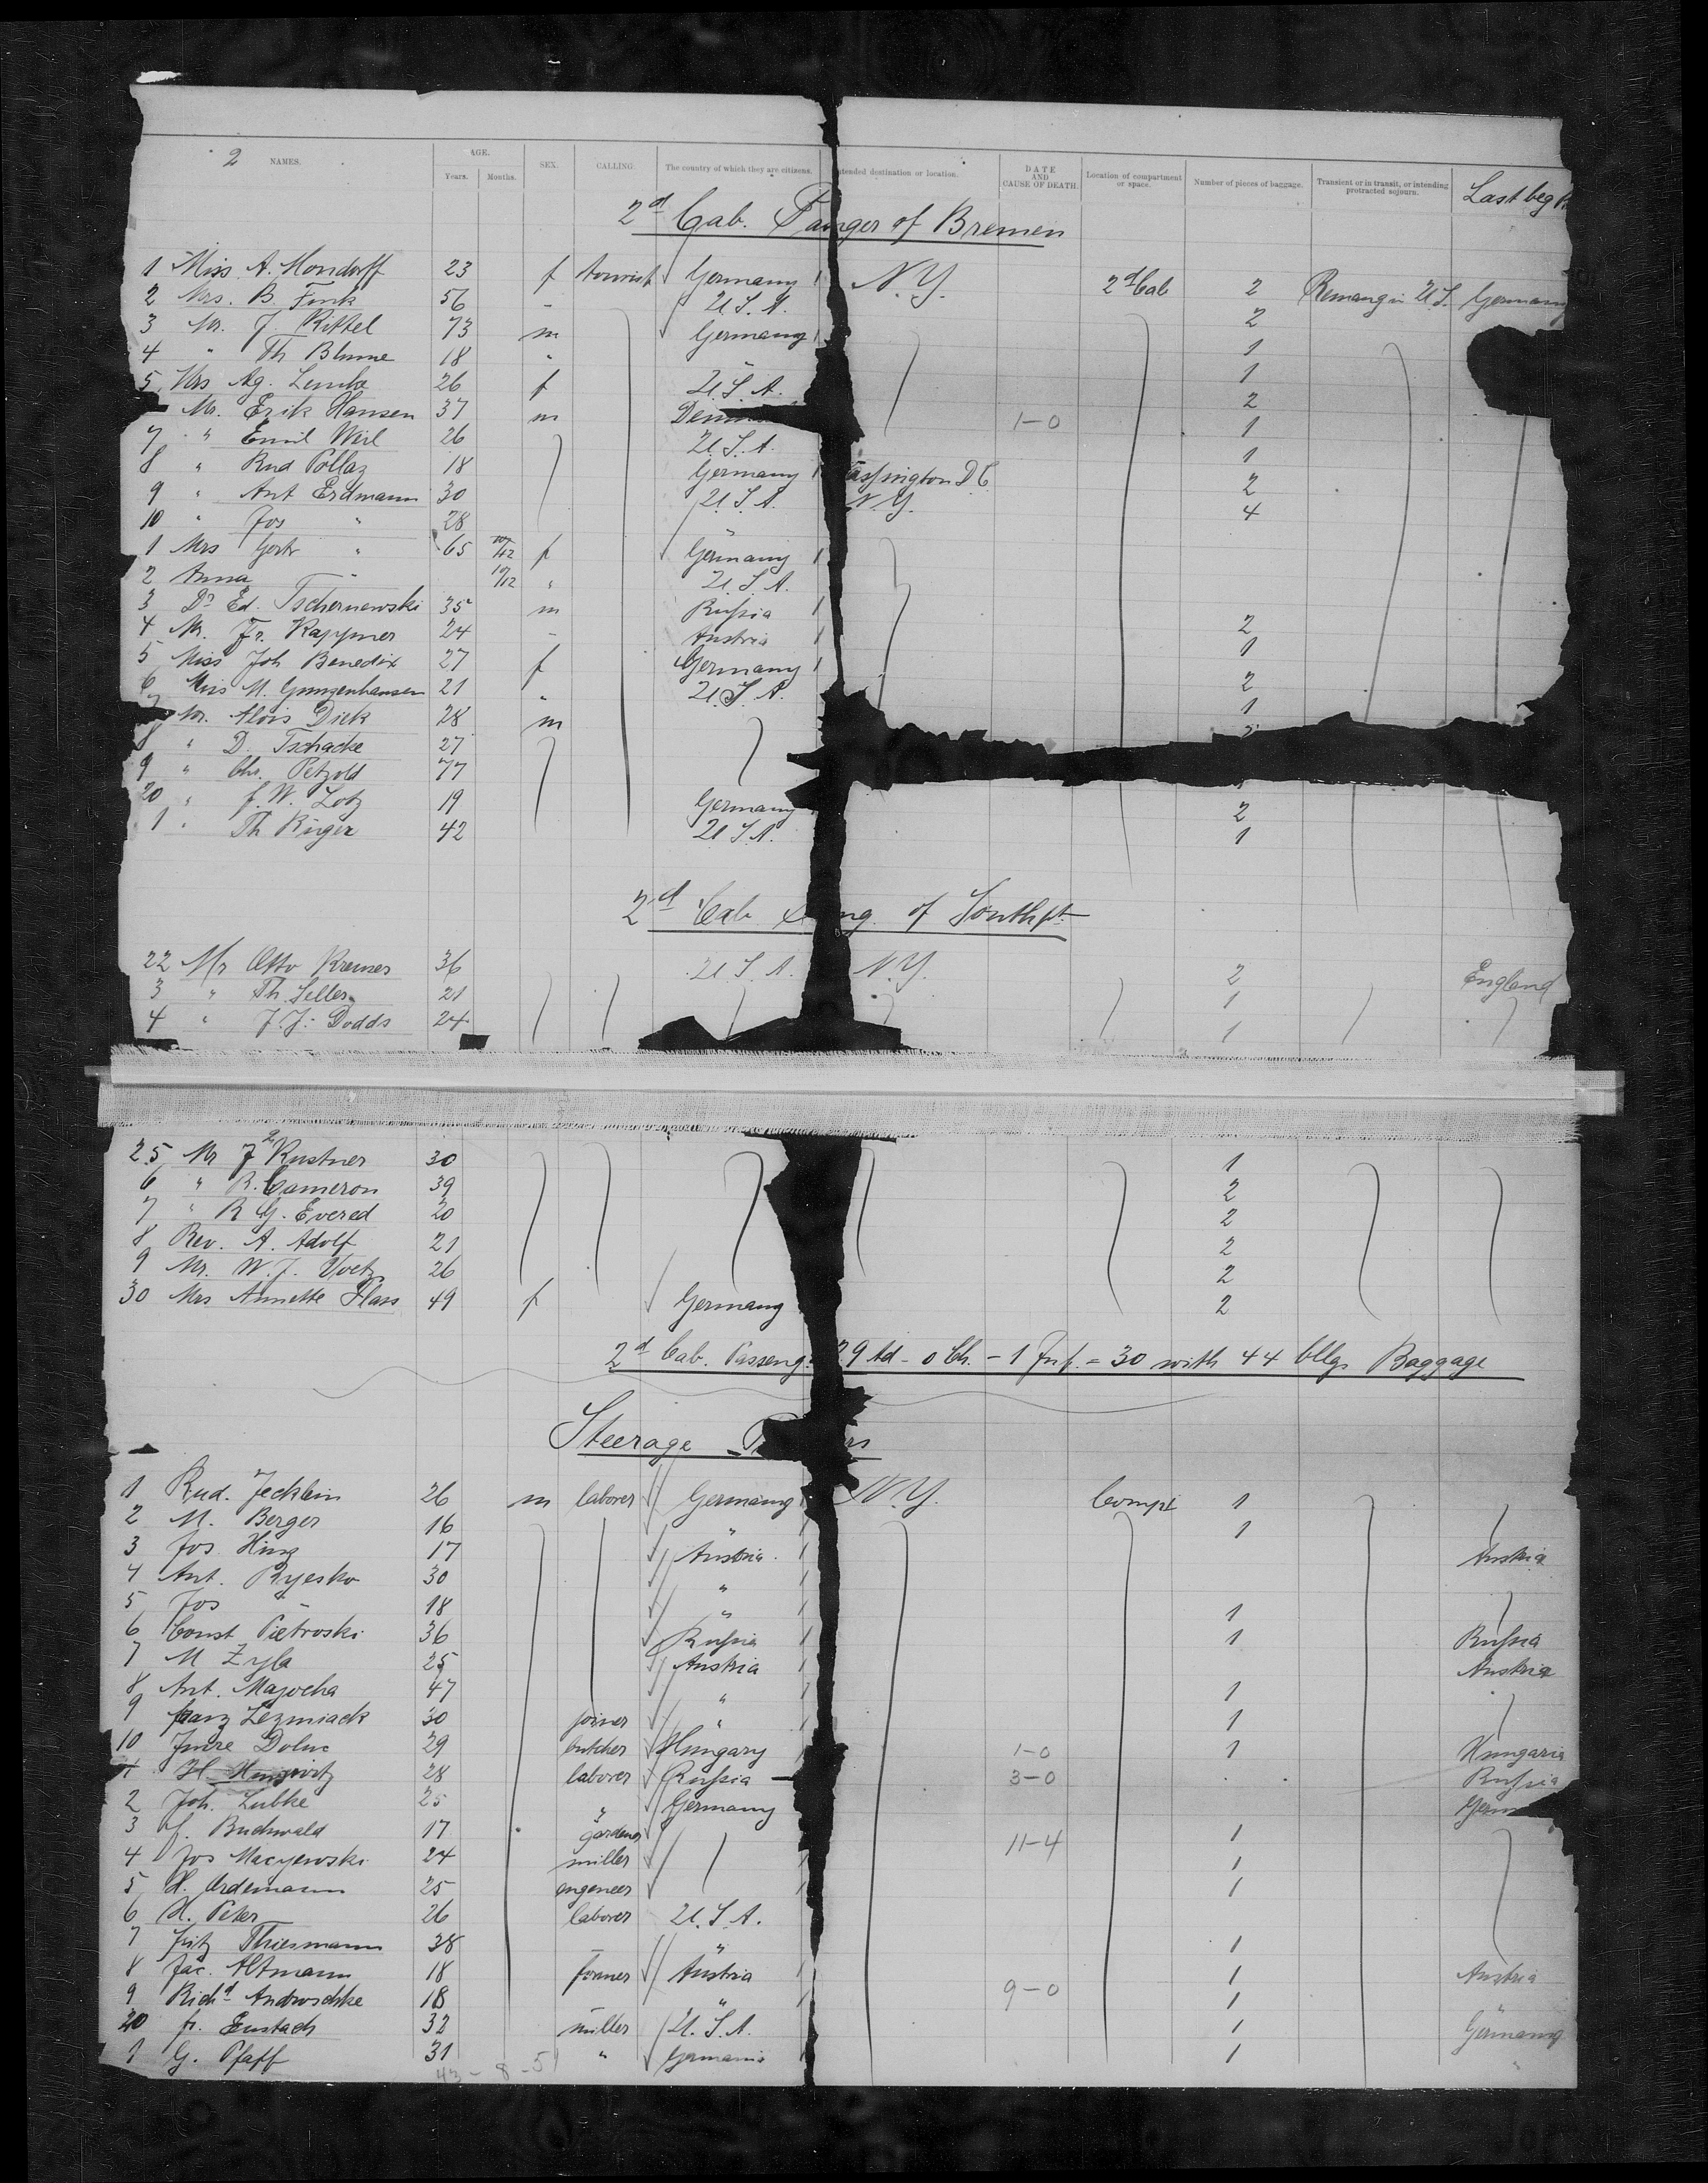 2 NAMES. AGE. Years. Months. SEX. CALLING. The country of which they are citizens. tended destination or location. DATE AND CAUSE OF DEATH. Location of compartment or space. Number of pieces of baggage. Transient or in transit, or intending protracted sojourn. Last
2d Cab. of Bremen
1 Miss A. Mondorff 23 f tourist Germany N.Y. 2d Cab 2 in U.S. Germany
2 Mrs. B. Fink 56 " U.S.A. 2
3 Mr. J. Rittel 73 m Germany 1
4 " Th Blume 18 " " 1
5 Mrs Ag. Lembe 26 f U.S.A. 2
Mr. Erik Hansen 37 m 1-0 1
7 " Emil Weil 26 U.S.A. 1
8 " Rud Pollaz 18 Germany ashington DC 2
9 " Ant Erdmann 30 U.S.A. N.Y. 4
10 " Jos " 28 "
1 Mrs Gertr " 65 f Germany
2 Anna " 10/12 " U.S.A.
3 Dr Ed. Tschernewski 35 m Russia 2
4 Mr. Fr. Kappmer 24 " Austria 1
5 Miss Joh Benedix 27 f Germany 2
6 Miss M. Gunzenhausen 21 " U.S.A. 1
Mr. Alois Dick 28 m
8 " D. Tschacke 27
9 " Chr. Petzold 77
20 " F. W. Lotz 19 Germany 2
1 " Th Rüger 42 U.S.A. 1
2d Cab of Southpt
22 Mr Otto Kremer 36 U.S.A. N.Y. 2 England
3 " Th. Seller 21 1
4 " J. J. Dodds 24 1
25 Mr J Kustner 30 1
6 " R. Cameron 39 2
7 " R G. Evered 20 2
8 Rev. A. Adolf 21 2
9 Mr. W. J. Voetz 26 2
30 Mrs Annette Hass 49 f Germany 2
2d Cab. Passeng. 29 Ad - 0 Ch. - 1 Inf. = 30 with 44 Cllgs Baggage
Steerage
1 Rud. Jecklin 26 m laborer Germany N.Y. Compt 1
2 M. Berger 16 " 1
3 Jos. Hing 17 Austria Austria
4 Ant. Ryesko 30 "
5 Jos " 18 " 1
6 Const Pietroski 36 Russia 1 Russia
7 M Zyla 25 Austria Austria
8 Ant. Majocha 47 " 1
9 Franz Lezniack 30 joiner " 1
10 Imre Doluc 29 butcher Hungary 1-0 1 Hungaria
28 laborer Russia 3-0 Russia
2 Joh. Lubke 25 " Germany
3 F. Buchwald 17 gardener 11-4 1
4 Jos Macyewski 24 miller 1
5 H. Ordemann 25 engeneer 1
6 H. Peter 26 laborer U.S.A.
7 Fritz Thiesmann 38 " 1
8 Jac. Altmann 18 Austria 1 Austria
9 Richd Androschke 18 " 9-0 1
20 Fr. Eustach 32 miller U.S.A. 1 Germany
1 G. Pfaff 31 " Germania 1 "
43 - 8 - 5